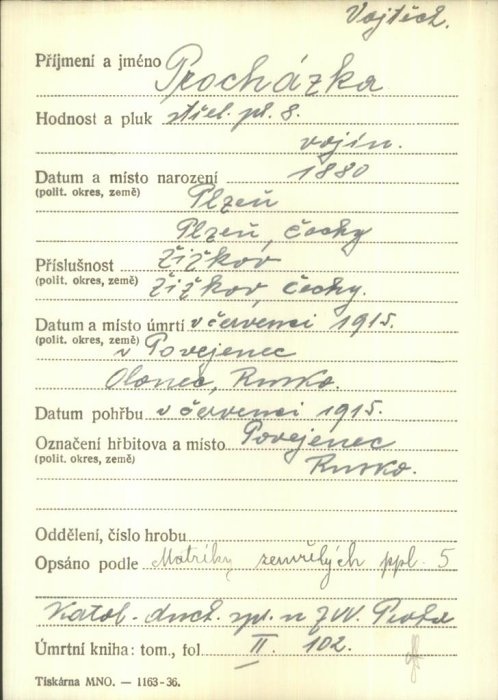 Vojtěch.
Příjmení a jméno Procházka
Hodnost a pluk střel. pl. 8.
vojín.
Datum a místo narození 1880
(polit. okres, země) Plzeň
Plzeň, Čechy
Příslušnost Žižkov
(polit. okres, země) Žižkov, Čechy.
Datum a místo úmrtí v červenci 1915.
(polit. okres, země) v Povejenec
Olonec, Rusko.
Datum pohřbu v červenci 1915.
Označení hřbitova a místo Povejenec
(polit. okres, země) Rusko.
Oddělení, číslo hrobu
Opsáno podle Matriky zemřelých ppl. 5
Katol. duch. spr. u ZVV. Praha
Úmrtní kniha: tom., fol II. 102.
Tiskárna MNO. — 1163-36.